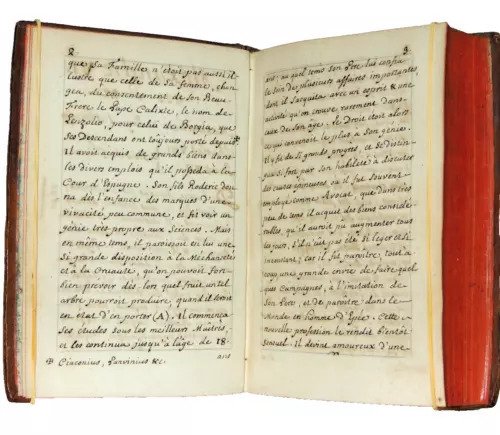 2
que Sa Famille n'étoit pas aussi il-
lustre que celle de Sa femme, chan-
gea, du consentement de Son Beau-
Frere le Pape Calixte, le nom de
Lenzolio, pour celui de Borgia, que
Ses Descendans ont toujours porté depuis
Il avoit acquis de grands biens dans
les divers emplois qu'il posseda à la
Cour d'Espagne. Son fils Roderic don-
na dès l'enfance des marques d'une
vivacité peu commune, et fit voir un
génie très propre aux Sciences. Mais
en même tems, il paroissoit en lui une
Si grande disposition à la Mechanceté
et à la Cruauté, qu'on pouvoit fort
bien prevoir dès lors quel fruit un tel
arbre pourroit produire, quand il seroit
en état d'en porter (A). Il commença
Ses études sous les meilleurs Maitres,
et les continua jusqu'à l'âge de 18-
ans
Ciaconius, Panvinius &c.
3
ans; au quel tems Son Pere lui confia
le soin de plusieurs affaires importantes,
dont il s'acquita avec un esprit & une
activité qu'on trouve rarement dans
ceux de Son age. Le Droit étoit alors
ce qui convenoit le plus à Son génie.
Il y fit de si grands progrès, et se distin-
gua si fort par Son habileté à discuter
des causes epineuses où il fut Souvent
employé comme Avocat, que dans très
peu de tems il acquit des biens conside-
rables, qu'il auroit pu augmenter tous
les jours, s'il n'eut pas été Si leger et Si
inconstant; car il fit paroitre tout à
coup une grande envie de faire quel-
ques Campagnes, à l'imitation de
Son Pere, et de paroitre dans le
Monde en homme d'Epée. Cette
nouvelle profession le rendit bientôt
sensuel. Il devint amoureux d'une